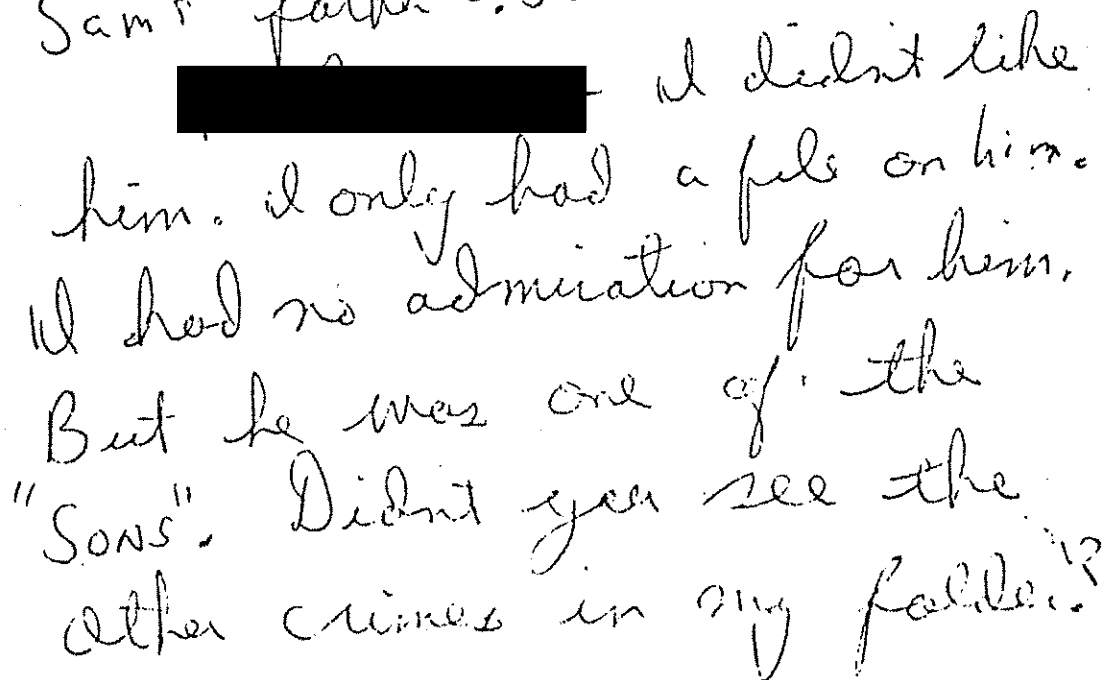 Sam's
I didn't like
him. I only had a file on him.
I had no admiration for him.
But he was one of the
"SONS". Didn't you see the
other crimes in my folder?